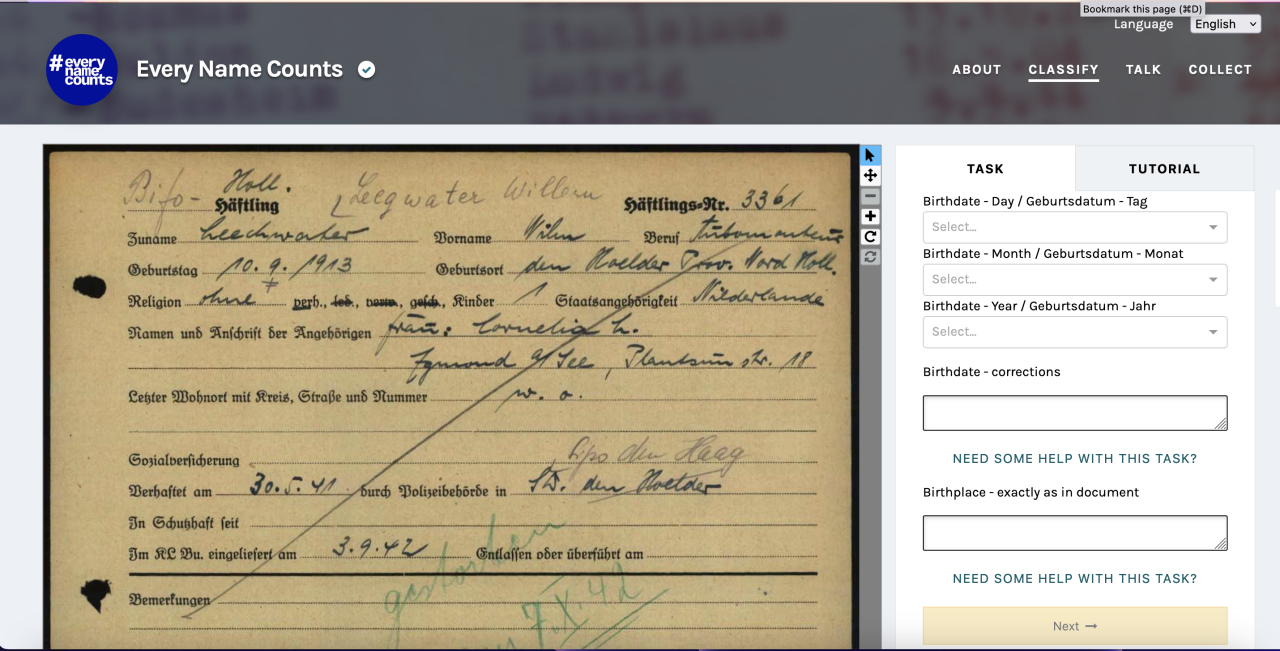 Bookmark this page (⌘D)
Language English
#every name counts
Every Name Counts
ABOUT CLASSIFY TALK COLLECT
Bifo- Holl. Leegwater Willem
Häftling Häftlings-Nr. 3361
Zuname Leechwater Vorname Wilm Beruf
Geburtstag 10. 9. 1913 Geburtsort den Hoelder Prov. Nord Holl.
Religion ohne verh., led., verw., gesch., Kinder 1 Staatsangehörigkeit Nilderlande
Namen und Anschrift der Angehörigen frau: Cornelia L.
Egmond a/ See, str. 18
Letzter Wohnort mit Kreis, Straße und Nummer w. o.
Sozialversicherung
den Haag
Verhaftet am 30.5.41 durch Polizeibehörde in den Hoelder
In Schutzhaft seit
Im KL Bu. eingeliefert am 3.9.42 Entlassen oder überführt am
gestorben
Bemerkungen
7.X.42
TASK TUTORIAL
Birthdate - Day / Geburtsdatum - Tag
Select...
Birthdate - Month / Geburtsdatum - Monat
Select...
Birthdate - Year / Geburtsdatum - Jahr
Select...
Birthdate - corrections
NEED SOME HELP WITH THIS TASK?
Birthplace - exactly as in document
NEED SOME HELP WITH THIS TASK?
Next →